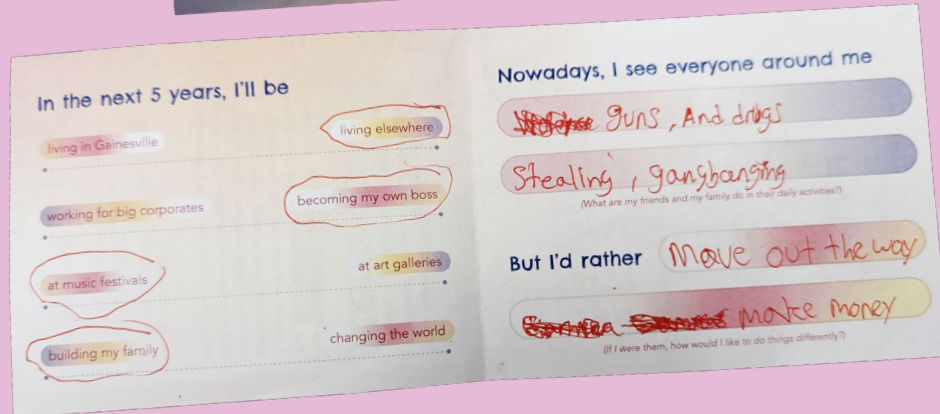 In the next 5 years, I'll be
living in Gainesville
living elsewhere
working for big corporates
becoming my own boss
at music festivals
at art galleries
building my family
changing the world
Nowadays, I see everyone around me
guns, And drugs
Stealing, gangbanging
(What are my friends and my family do in their daily activities?)
But I'd rather Move out the way
make money
(If I were them, how would I like to do things differently?)